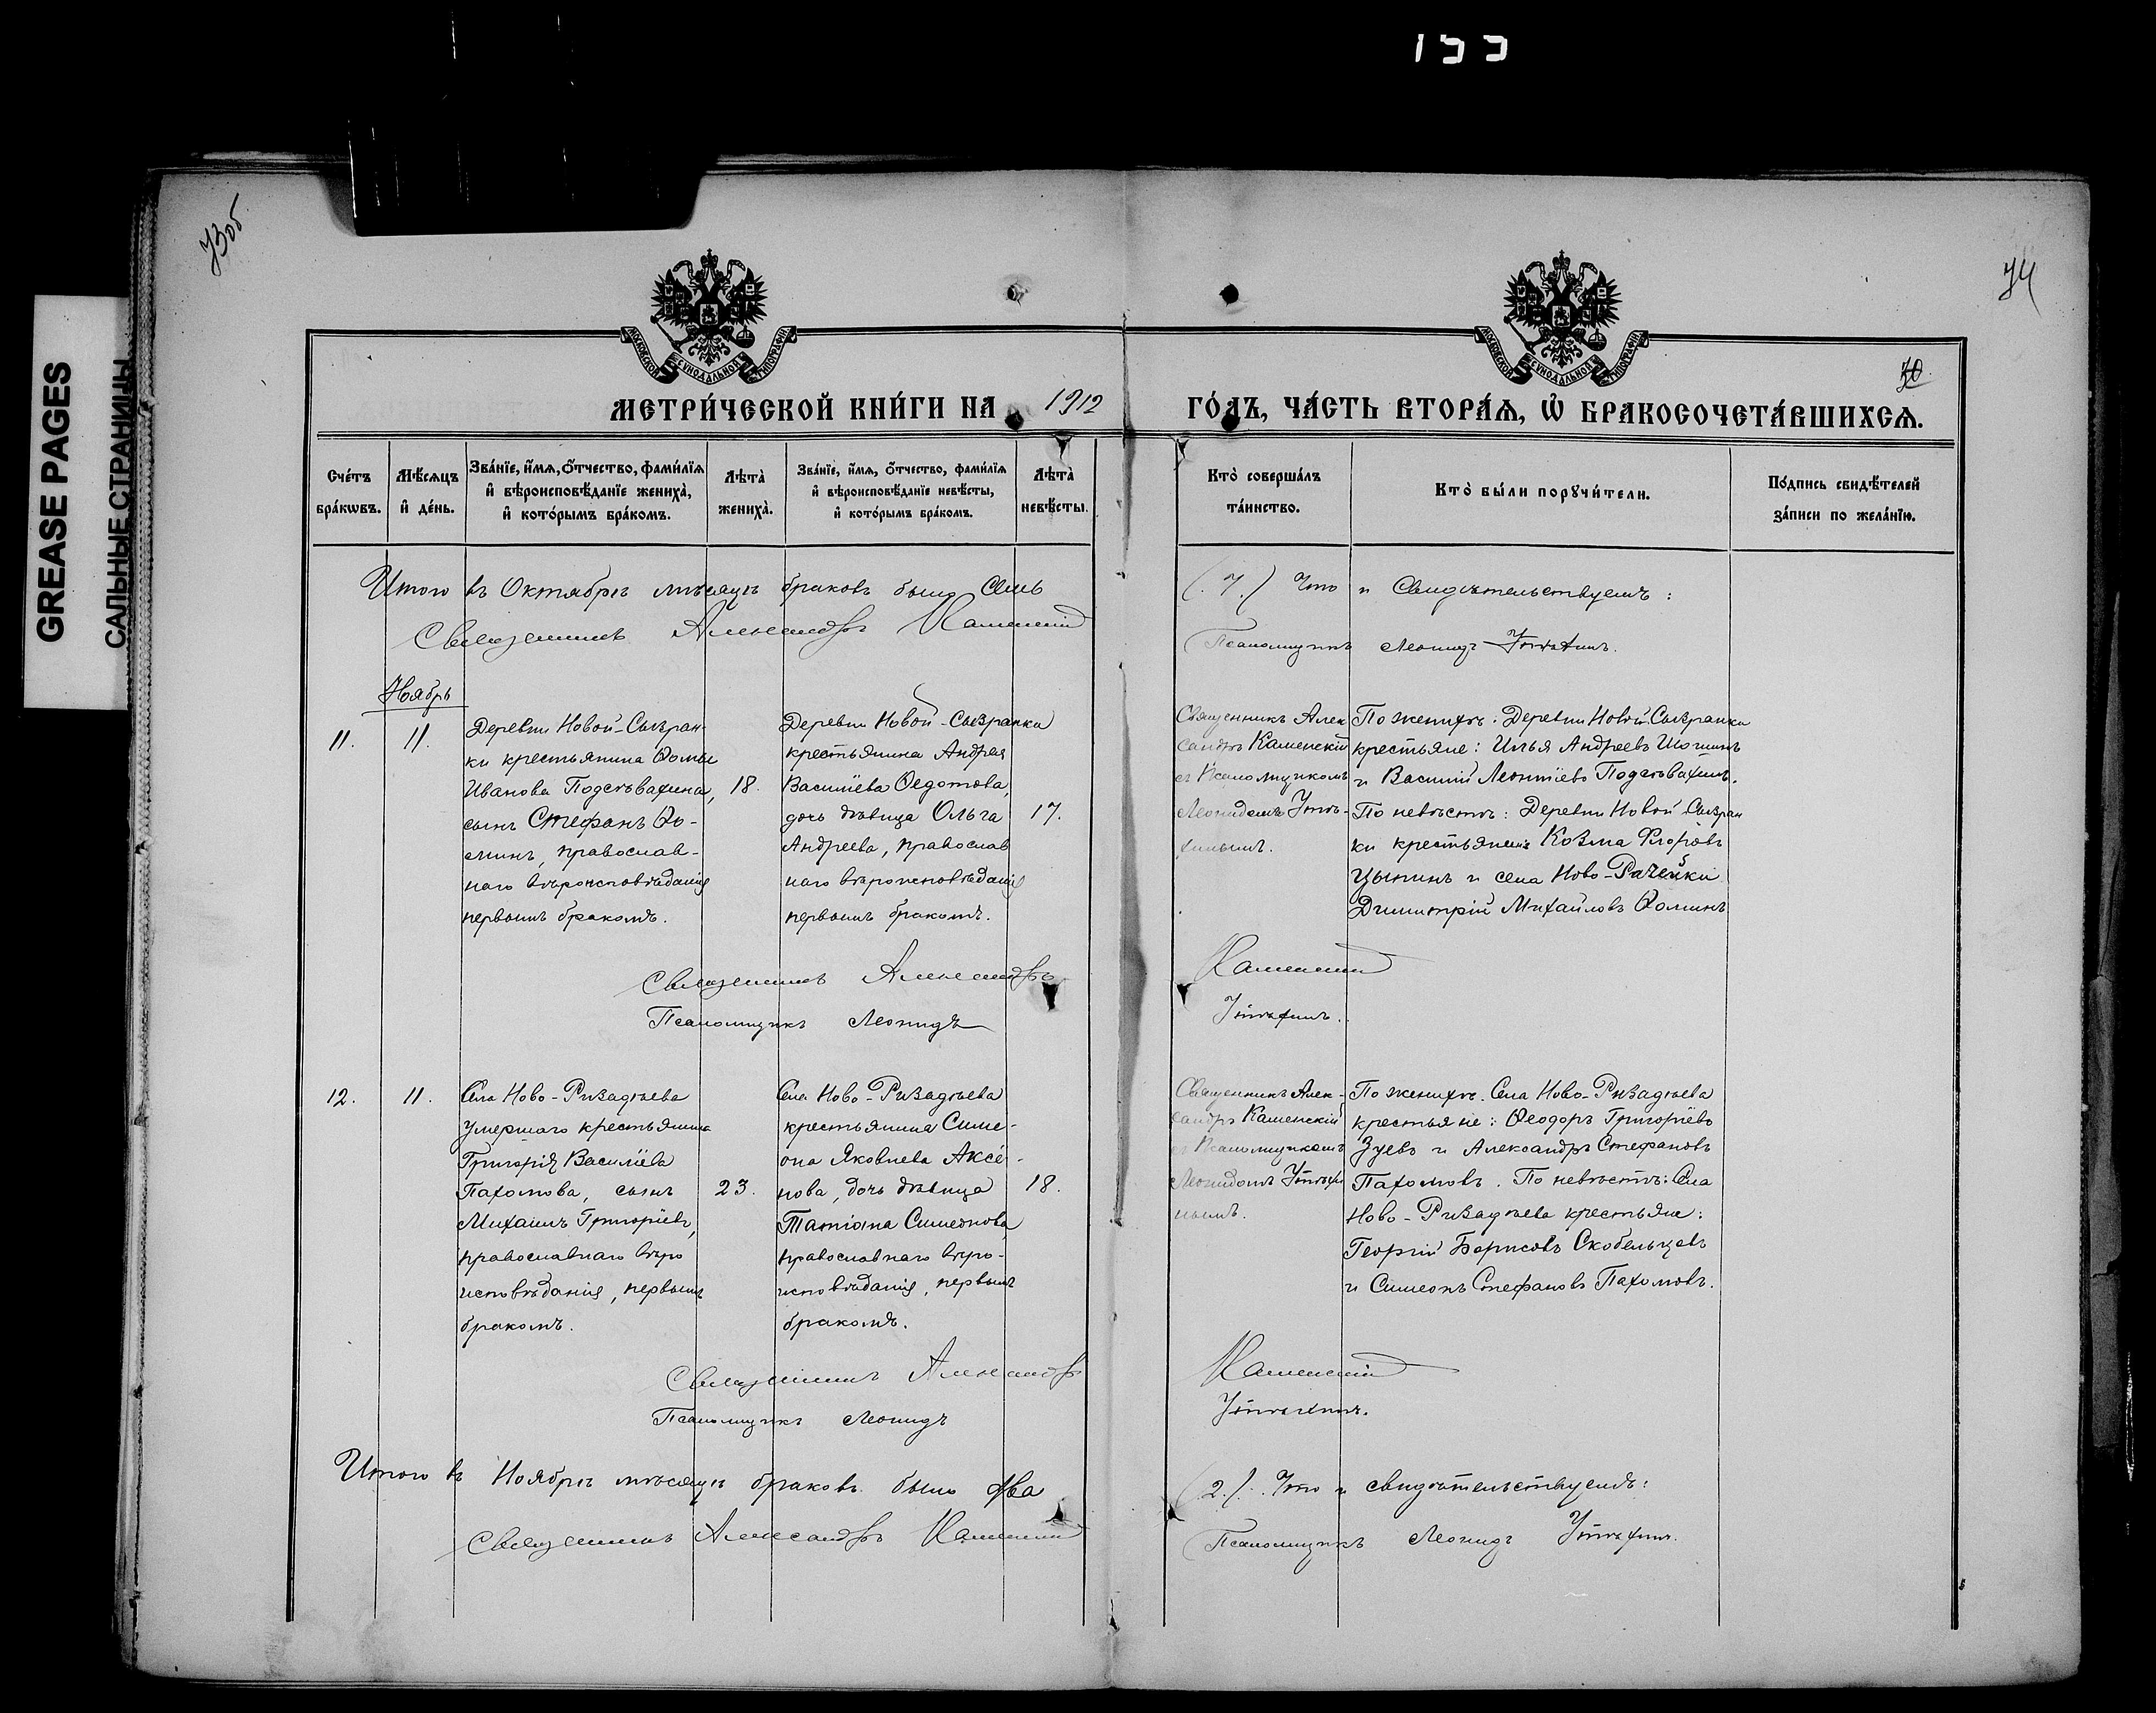 155
73об
74
70.
GREASE PAGES
САЛЬНЫЕ СТРАНИЦЫ
МОСКОВСКОЙ СѴНОДАЛЬНОЙ ТИПОГРАФІИ
МОСКОВСКОЙ СѴНОДАЛЬНОЙ ТИПОГРАФІИ
МЕТРИ́ЧЕСКОЙ КНИ́ГИ НА 1912 ГО́ДЪ, ЧА́СТЬ ВТОРА́Ѧ, Ѡ҆ БРАКОСОЧЕТА́ВШИХСѦ.
Сче́тъ
бра́кѡвъ.
Мѣ́сѧцъ
и҆ де́нь.
Зва́нїе, и҆́мѧ, ѻ҆́тчество, фами́лїѧ
и҆ вѣроисповѣ́данїе жениха̀,
и҆ кото́рымъ бра́комъ.
Лѣта̀
жениха̀.
Зва́нїе, и҆́мѧ, ѻ҆́тчество, фами́лїѧ
и҆ вѣроисповѣ́данїе невѣ́сты,
и҆ кото́рымъ бра́комъ.
Лѣта̀
невѣ́сты.
Кто̀ соверша́лъ
та́инство.
Кто̀ бы́ли порꙋчи́тели.
По́дпись свидѣ́телей
за́писи по жела́нїю.
Итого въ Октябрѣ мѣсяцѣ браковъ было семь (7.) Что и свидѣтельствуемъ:
Священникъ Александръ Каменскій
Псаломщикъ Леонидъ
Ноябрь
11.
11.
Деревни Новой-Сызран-
ки крестьянина Ѳомы
Иванова Подсѣвахина,
сынъ Стефанъ Ѳо-
минъ, православ-
наго вѣроисповѣданія
первымъ бракомъ.
18.
Деревни Новой-Сызранки
крестьянина Андрея
Василіева Ѳедотова,
дочь дѣвица Ольга
Андреева, православ
наго вѣроисповѣданія
первымъ бракомъ.
17.
Священникъ Алек
сандръ Каменскій
съ Псаломщикомъ
Леонидомъ
По женихѣ: Деревни Новой Сызранки
крестьяне: Илья Андреевъ
и Василій Леонтіевъ Подсѣвахинъ.
По невѣстѣ: Деревни Новой Сызран
ки крестьянинъ Козма
Цыпинъ и села Ново-Рачейки
Димитрій Михайловъ Ѳоминъ
Священникъ Александръ Каменскій
Псаломщикъ Леонидъ
12.
11.
Села Ново-Ризадѣева
умершаго крестьянина
Григорія Василіева
Пахомова, сынъ
Михаилъ Григоріевъ,
православнаго вѣро
исповѣданія, первымъ
бракомъ.
23.
Села Ново-Ризадѣева
крестьянина Симе-
она Яковлева Аксе-
нова, дочь дѣвица
Татіана Симеонова,
православнаго вѣро-
исповѣданія, первымъ
бракомъ.
18.
Священникъ Алек-
сандръ Каменскій
съ Псаломщикомъ
Леонидомъ
По женихѣ. Села Ново-Ризадѣева
крестьяне: Ѳеодоръ Григоріевъ
Зуевъ и Александръ Стефановъ
Пахомовъ. По невѣстѣ: Села
Ново-Ризадѣева крестьяне:
Георгій Борисовъ Скобельцевъ
и Симеонъ Стефановъ Пахомовъ.
Священникъ Александръ Каменскій
Псаломщикъ Леонидъ
Итого въ Ноябрѣ мѣсяцѣ браковъ было два (2.). Что и свидѣтельствуемъ:
Священникъ Александръ Каменскій
Псаломщикъ Леонидъ